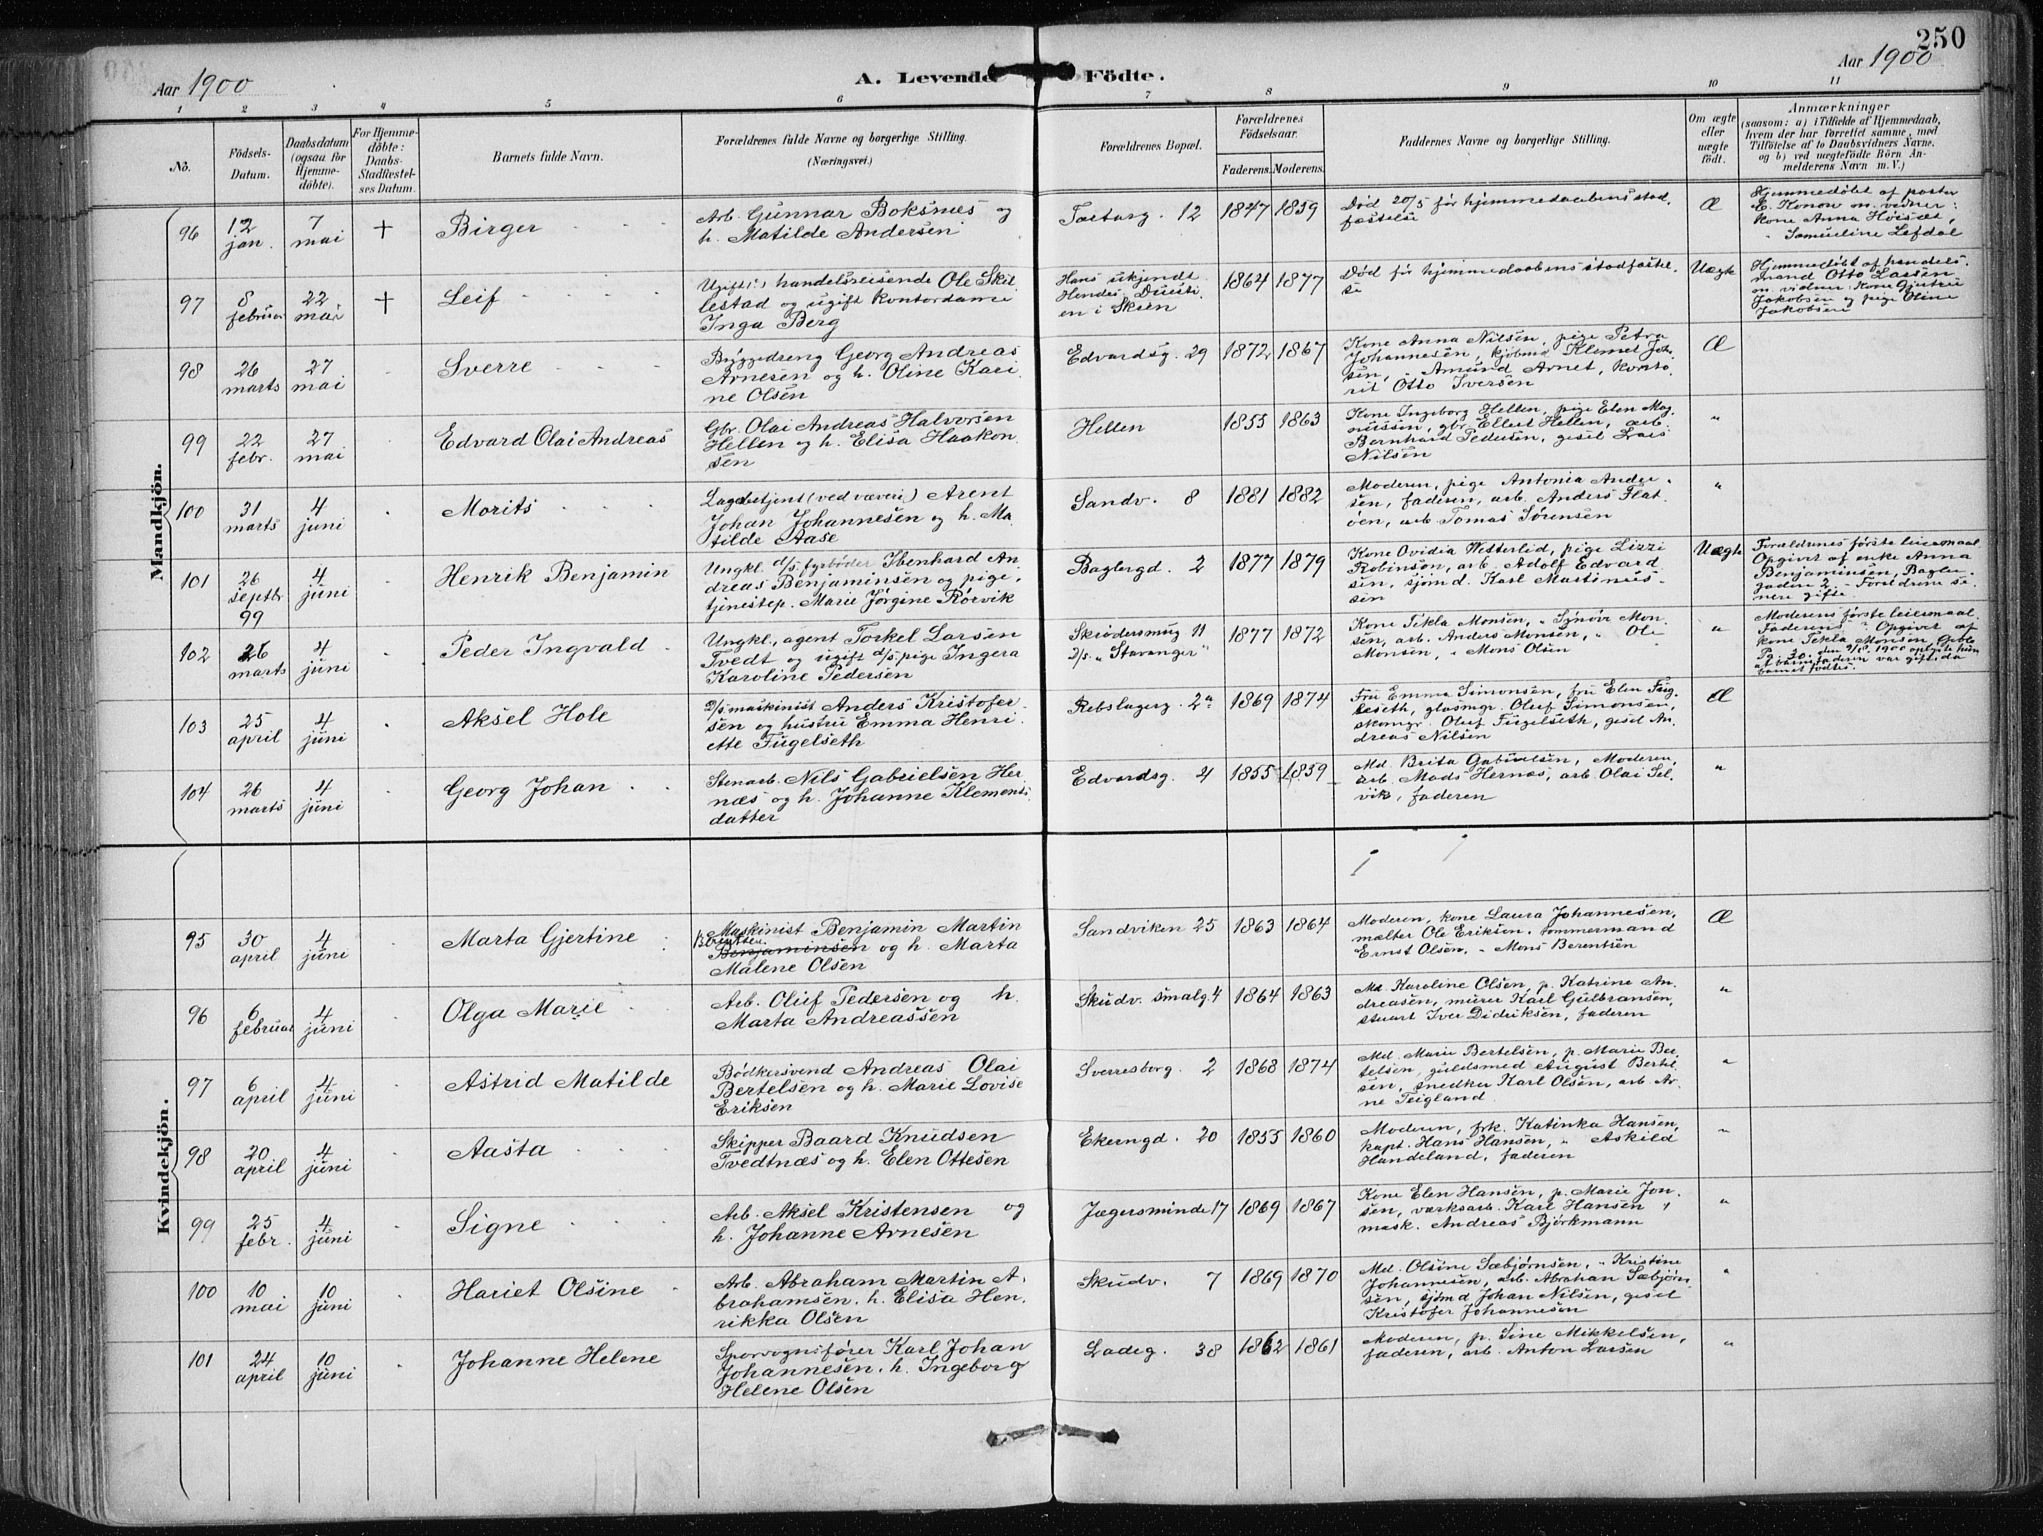 250
Aar 1900
A. Levende Födte.
Aar 1900
1 2 3 4 5 6 7 8 9 10 11
No.
Födsels-Datum.
Daabsdatum (ogsaa for Hjemmedöbte).
For Hjemmedöbte: Daabs-Stadfæstelses Datum.
Barnets fulde Navn.
Forældrenes fulde Navne og borgerlige Stilling.
(Næringsvei.)
Forældrenes Bopæl.
Forældrenes Födselsaar.
Faderens. Moderens.
Faddernes Navne og borgerlige Stilling.
Om ægte eller uægte födt.
Anmærkninger
(saasom: a) i Tilfælde af Hjemmedaab, hvem der har forrettet samme, med Tilföielse af to Daabsvidners Navne, og b) ved uægtefödte Börn Anmelderens Navn m. V.)
Mandkjön.
96 12 jan. 7 mai + Birger
Arb. Gunnar Boksnæs og
h. Matilde Andersen
12 1847 1859
Død 20/5 før hjemmedaabens stad-
fæstelse
Æ
Hjemmedøbt af
E. Konow m. vidner:
kone Anna
" Samueline Lefdal
97 8 februar 22 mai + Leif
Ugift(?) handelsreisende Ole Skil-
lestad og ugift kontordame
Inga Berg
Hans ukjendt
Hendes
en i Skien
1864 1877
Død før hjemmedaabens stadfæstel-
se
Uægte
Hjemmedøbt af handels-
mand Otto Larsen
m. vidner: Kone
Jakobsen og pige Oline
Jakobsen
98 26 marts 27 mai Sverre
Bryggedreng Georg Andreas
Arnesen og h. Oline Kari-
ne Olsen
Edvardsg. 29 1872 1867
Kone Anna Nilsen, pige Petra
Johannesen, kjøbmd Klemet Joh-
sen, " Amund Arnet, konto-
rist Otto Iversen
Æ
99 22 febr. 27 mai Edvard Olai Andreas
Gbr. Olai Andreas Halvorsen
Hellen og h. Elisa Haakon-
sen
Hellen 1855 1863
Kone Ingeborg Hellen, pige Elen Mag-
nussen, gbr Ellert Hellen, arb.
Bernhard Pedersen, gesel Lars
Nilsen
"
100 31 marts 4 juni Morits
Lagerbetjent (ved væveri) Arent
Johan Johannesen og h. Ma-
tilde Aase
Sandv. 8 1881 1882
Moderen, pige Antonia Ander-
sen, faderen, arb. Anders Flat-
øen, arb Tomas Sørensen
"
101 26 septbr 99 4 juni Henrik Benjamin
Ungkl. d/s fyrbøder Ibenhard An-
dreas Benjaminsen og pige,
tjenestep. Marie Jørgine Rørvik
Baglergd. 2 1877 1879
Kone Ovidia Westerlid, pige Lizzi
Robinson, arb. Adolf Edvard-
sen, sjømd. Karl Martinus-
sen
Uægte
Forældrenes første leiermaal
Opgivet af enke Anna
Benjaminsen, Bagler-
gaden 2. - Forældrene se-
nere gifte.
102 26 marts 4 juni Peder Ingvald
Ungkl., agent Torkel Larsen
Tvedt og ugift d/s pige Ingera
Karoline Pedersen
Skrødersmug 11
D/s. "Stavanger"
1877 1872
Kone Tekla Monsen, " Synøve Mon-
sen, arb. Anders Monsen, " Ole
Monsen, " Mons Olsen
"
Moderens første leiermaal
Faderens " Opgivet af
kone Tekla Monsen,
barnet fødtes.
103 25 april 4 juni Aksel Hole
D/s maskinist Anders Kristofer-
sen og hustru Emma Henri-
ette Fugelseth
Rebslagerg. 2a 1869 1874
Fru Emma Simonsen, fru Elen Fug-
leseth, glasmgr. Oluf Simonsen,
skomgr. Oluf Fugelseth, gesel An-
dreas Nilsen
Æ
104 26 marts 4 juni Georg Johan
Stenarb. Nils Gabrielsen Her-
næs og h. Johanne Klements-
datter
Edvardsg. 4 1855 1859
Md. Brita Gabrielsen, Moderen,
arb. Mads Hernæs, arb. Olai Sel-
vik, faderen
"
Kvindekjön.
95 30 april 4 juni Marta Gjertine
Maskinist Benjamin Martin
Berntsen
Benjaminsen og h. Marta
Malene Olsen
Sandviken 25 1863 1864
Moderen, kone Laura Johannesen,
mælter Ole Eriksen, tømmermand
Ernst Olsen, " Mons Berentsen
Æ
96 6 februar 4 juni Olga Marie
Arb. Oluf Pedersen og h.
Marta Andreassen
Skudv. smalg. 4 1864 1863
Md. Karoline Olsen, p. Katrine An-
dreasen, murer Karl Gulbransen,
stuart Iver Didriksen, faderen
"
97 6 april 4 juni Astrid Matilde
Bødkersvend Andreas Olai
Bertelsen og h. Marie Lovise
Eriksen
Sverresborg. 2 1868 1874
Md. Marie Bertelsen, p. Marie Ber-
telsen, guldsmed August Bertel-
sen, snedker Karl Olsen, arb. Ar-
ne Teigland.
"
98 20 april 4 juni Aasta
Skipper Baard Knudsen
Tvedtnæs og h. Elen Ottesen
Ekerngd. 20 1855 1860
Moderen, frk. Katinka Hansen,
kapt. Hans Hansen, " Askild
Handeland, faderen
"
99 25 febr. 4 juni Signe
Arb. Aksel Kristensen og
h. Johanne Arnesen
Jægersminde 17 1869 1867
Kone Elen Hansen, p. Marie Jon-
sen, værksarb. Karl Hansen,
mask. Andreas Bjørkmann
"
100 10 mai 10 juni Hariet Olsine
Arb. Abraham Martin A-
brahamsen, h. Elisa Hen-
rikka Olsen
Skudv. 7 1869 1870
Md. Olsine Sæbjørnsen, " Kristine
Johannesen, arb. Abrahan Sæbjørn-
sen, sjømd Johan Nilsen, gesel
Kristofer Johannesen
"
101 24 april 10 juni Johanne Helene
Sporvognsfører Karl Johan
Johannesen, h. Ingeborg
Helene Olsen
Ladeg. 38 1862 1861
Moderen, p. Sine Mikkelsen,
faderen, arb. Anton Larsen
"